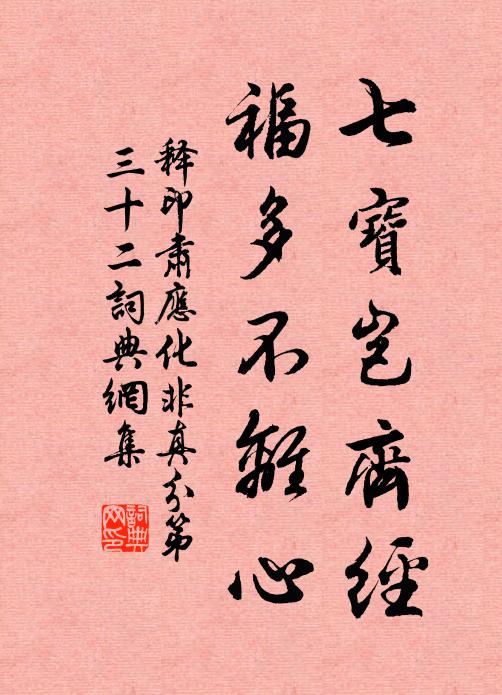 七寶豈齊經
福多不離心
释印肅應化非真分第
三十二詞典網集
詞典
网印